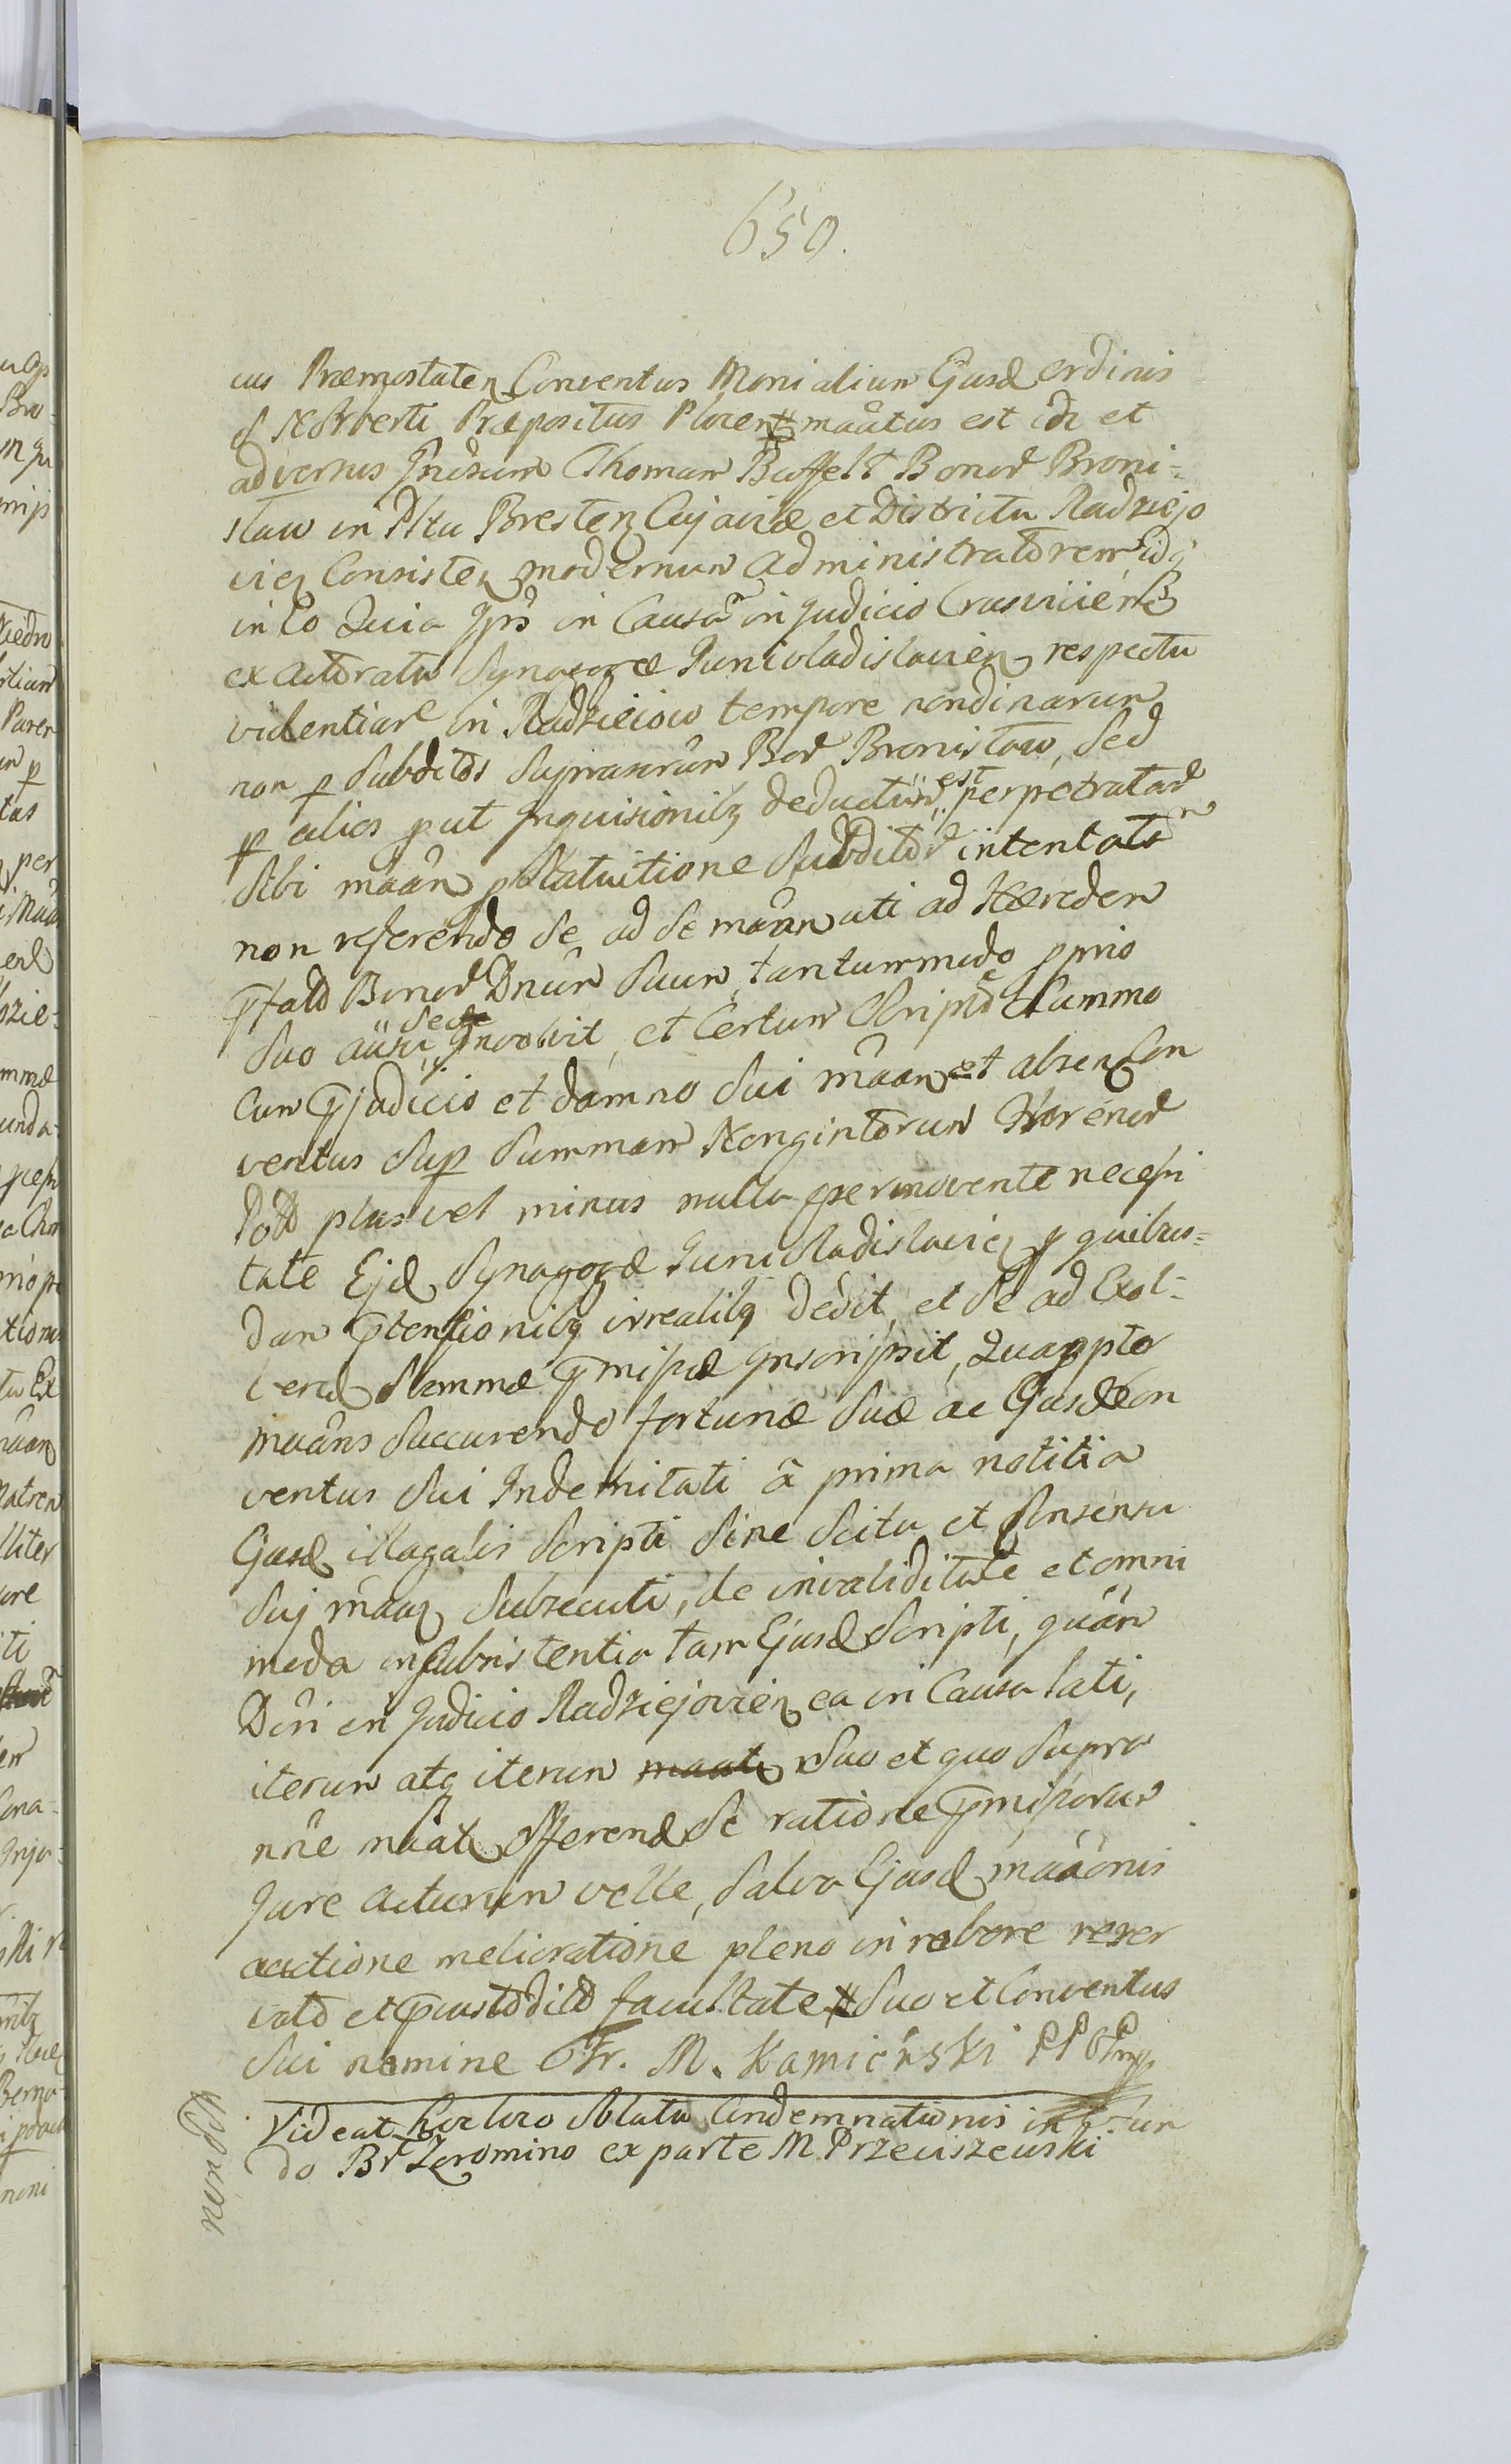 650.
cus Præmostaten Conventus Monialium Ejusd ordinis
S Norberti Præpositus Plocen maãtus est idr et
adversus Gnõsum Thomam Buffelt Bonor Broni=
staw in Pltu Bresten Cujaviæ et Districtu Radziejo
vien Consisten modernum Administratorem idq
in eo Quia Ipse in Causa in Judicio Crusvicien
ex Actoratu Synagogæ Junivladislavien respectu
violentiar in Radziejow tempore nondinarum
non p Subditos Suprascrûm Bor Bronistaw, Sed
p alios put Inquisitionibg deductum est, perpetratar
Sibi maãn p Statuitione Subditor intentata
non referendo Se, ad Se maãn uti ad Hæredem
pfator Bonor Dnûm Suum, tantummodo pprio
Suo ausu, Sese Involvit, et Certum Scriptû Summo
Cum pjudicio et damno Sui maãn et absen Con
ventus Sup Summam Nongintorum Florenor
Poll plus vel minus nulla permovente necessi
tate Ejd Synagogæ Junivladislavien p quibus=
dam ptensionibg irrealibg dedit, et Se ad Exol=
vend Summæ pmissæ Inscripsit, Quappter
maãns Succurendo fortunæ Suæ ac Ejusd Con
ventus Sui Indemnitati â prima notitia
Ejusd illagalis Scripti Sine Scitu et Consensu
Suj maãn Subsecuti, de invaliditate et omni
moda insubsistentia tam Ejusd Scripti, quâm
Dcrti in Judicio Radziejovien ea in Causa lati,
iterum atq iterum maãt Suo et quo Supra
nne maãt Offerend Se ratione pmissorum
Jure Acturum velle, Salva Ejusd maãonis
auctione melioratione pleno in robore reser
vata et pcustodita facultate Suo et Conventus
Sui nomine Fr. M. Kamiénski PP mp
Videat hoc loco Oblata Condemnationis in
do Br Zeromino ex parte M Przeciszewski